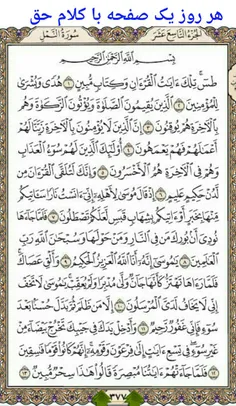 هر روز یک صفحه با کلام حق
الجزء التاسع عشر
سورة النمل
بسم الله الرحمن الرحيم
طس تلك ءايت القرءان وكتاب مبين ۱ هدى وبشرى
للمؤمنين ۲ الذين يقيمون الصلوة ويؤتون الزكوة وهم
بالاخرة هم يوقنون ۳ إن الذين لا يؤمنون بالاخرة زينا لهم
أعملهم فهم يعمهون ۴ أولئك الذين لهم سوء العذاب
وهم فى الاخرة هم الأخسرون ۵ وإنك لتلقى القرءان من
لدن حكيم عليم ۶ إذ قال موسى لأهله إنى ءانست نارا سءاتيكم
منها بخبر أو ءاتيكم بشهاب قبس لعلكم تصطلون ۷ فلما جاءها
نودى أن بورك من فى النار ومن حولها وسبحن الله رب
العلمين ۸ يموسى إنه أنا الله العزيز الحكيم ۹ وألق عصاك
فلما رءاها تهتز كأنها جان ولى مدبرا ولم يعقب يموسى لا تخف
إنى لا يخاف لدى المرسلون ۱۰ إلا من ظلم ثم بدل حسنا بعد
سوء فإنى غفور رحيم ۱۱ وأدخل يدك فى جيبك تخرج بيضاء من
غير سوء فى تسع ءايت إلى فرعون وقومه إنهم كانوا قوما فسقين
۱۲ فلما جاءتهم ءايتنا مبصرة قالوا هذا سحر مبين ۱۳
۳۷۷